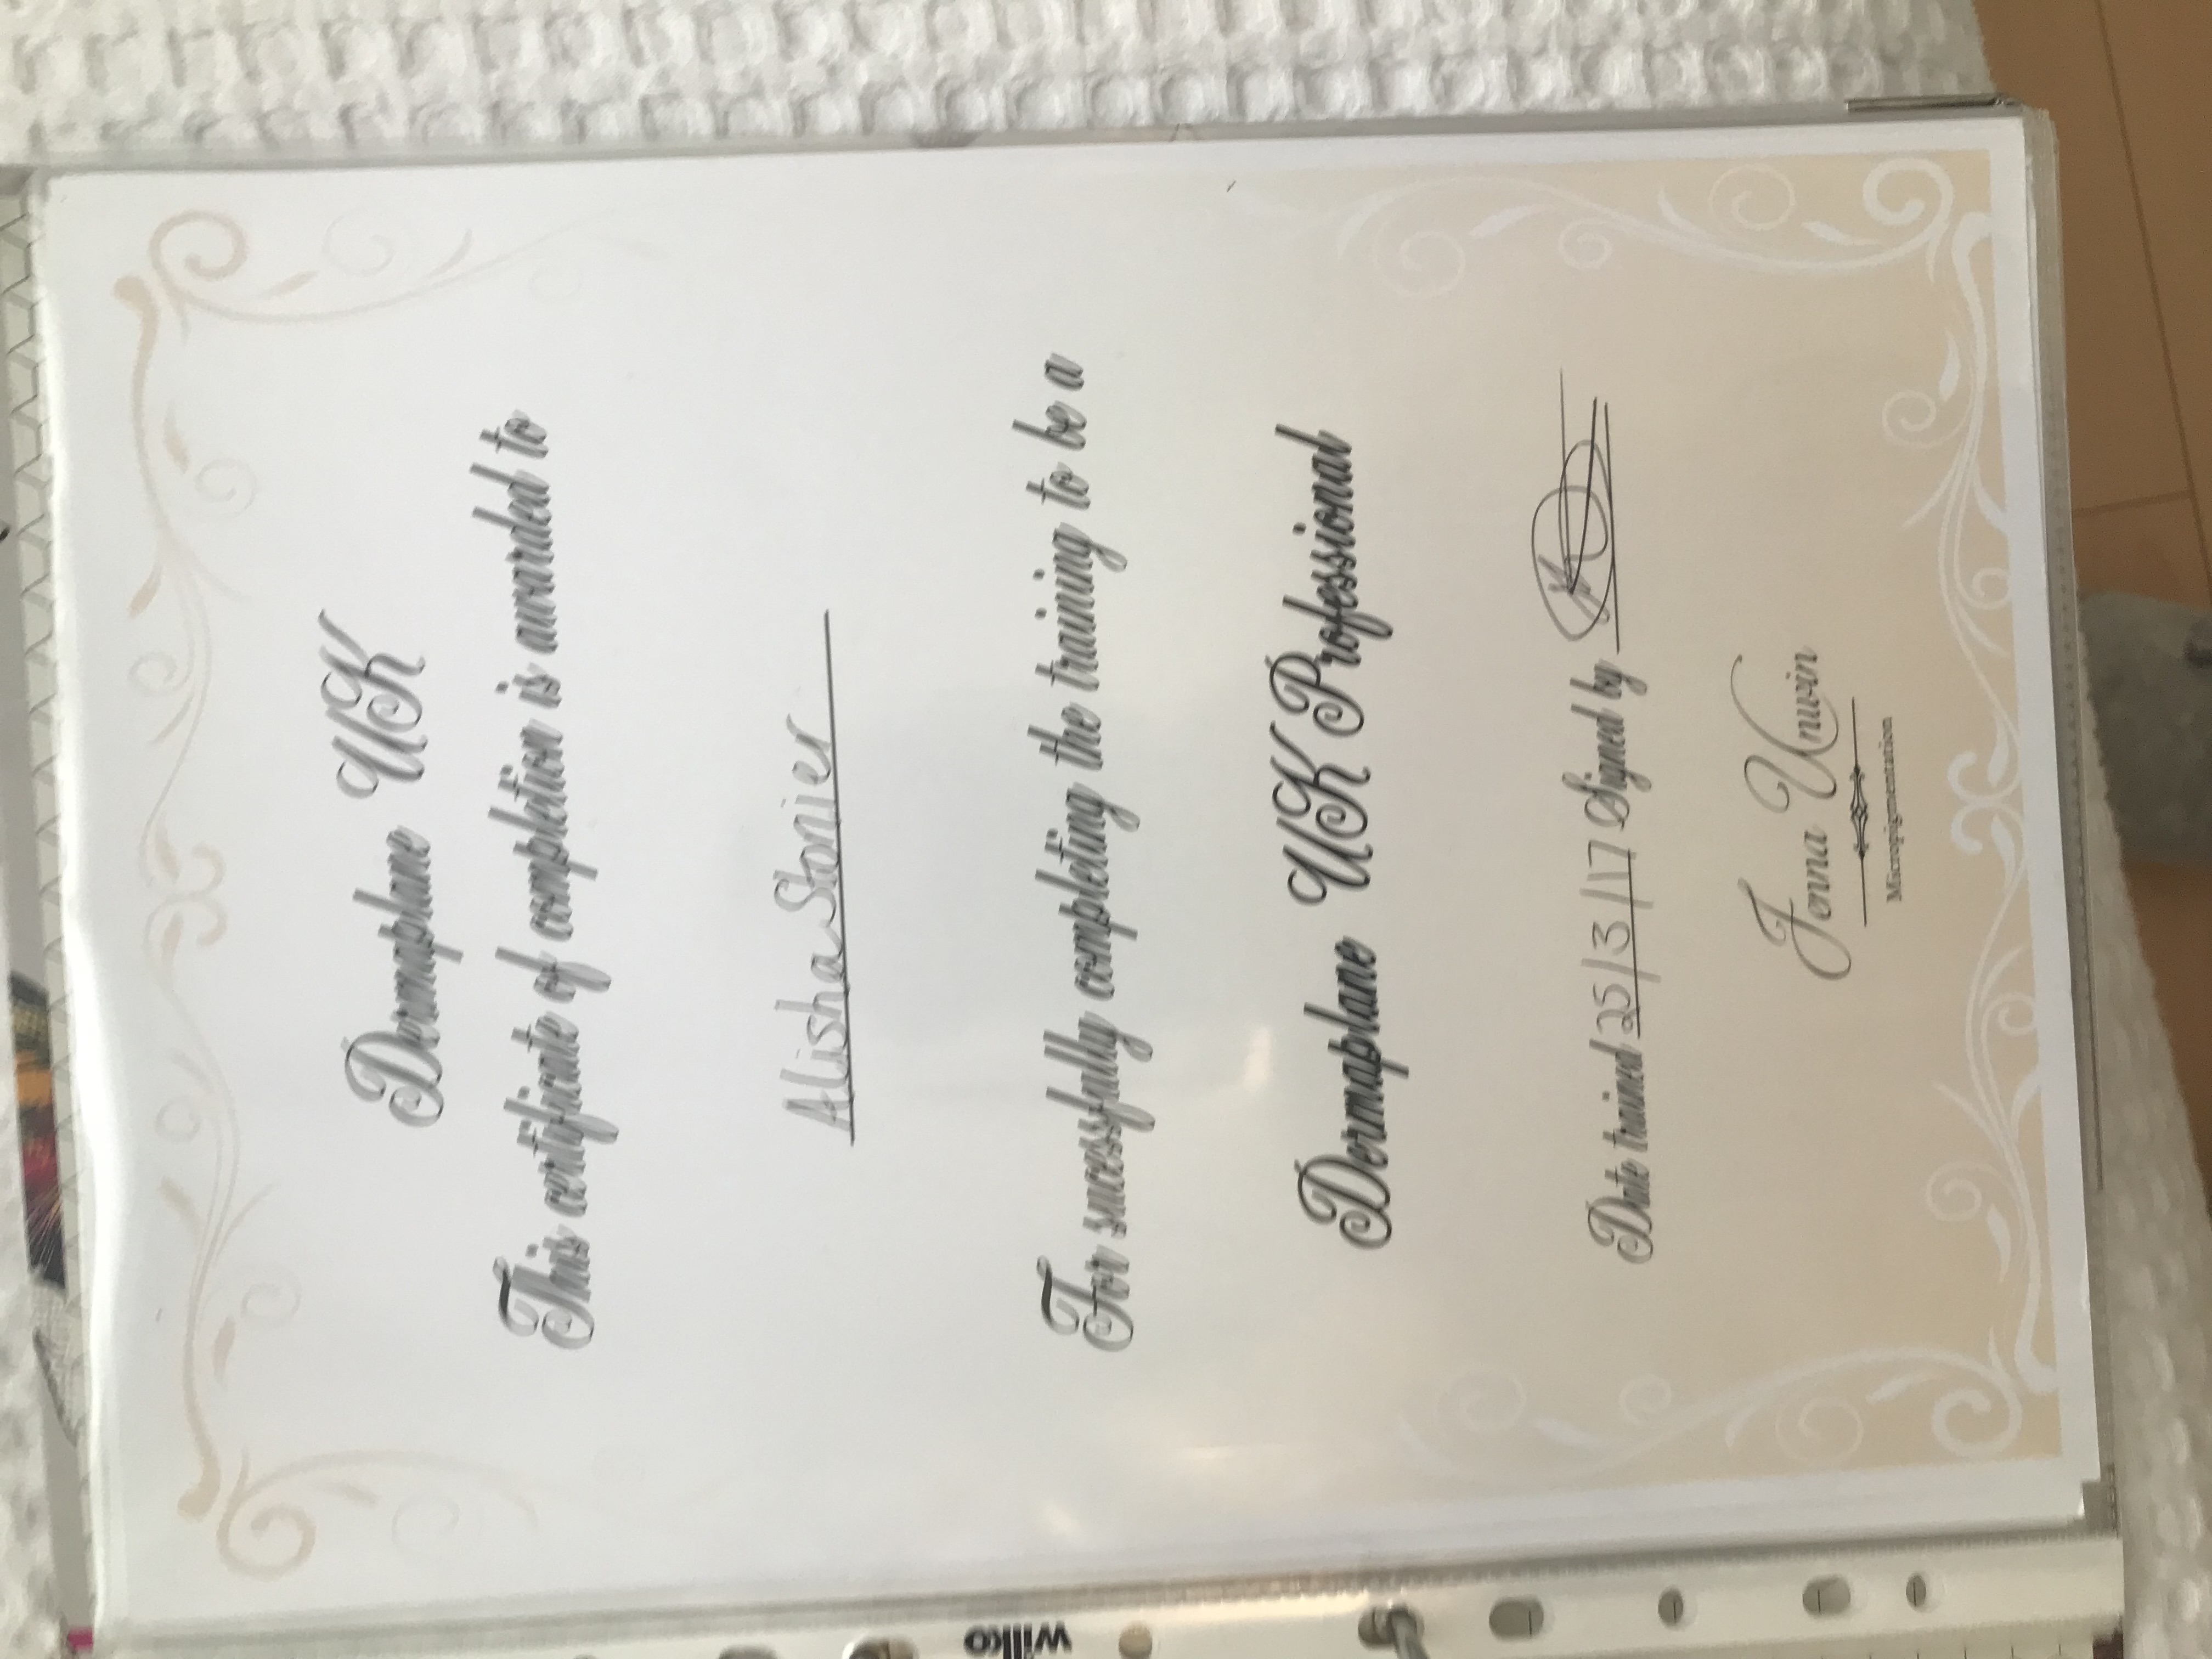 Dermaplane UK
This certificate of completion is awarded to
Alisha Stonier
For sucessfully completing the training to be a
Dermaplane UK Professional
Date trained 25/3/17 Signed by
Jenna Unwin
Micropigmentation
wilko